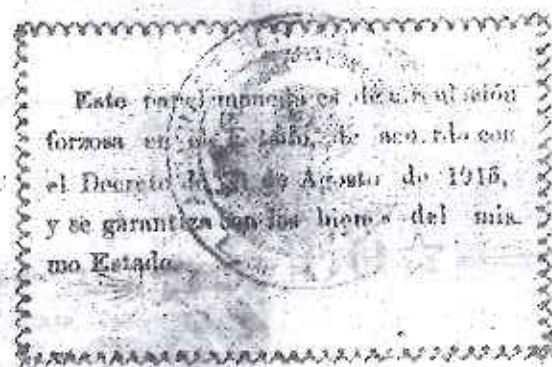 Este papel moneda es de circulación
forzosa en el Estado, de acuerdo con
el Decreto de de Agosto de 1915,
y se garantiza con los bienes del mis-
mo Estado.